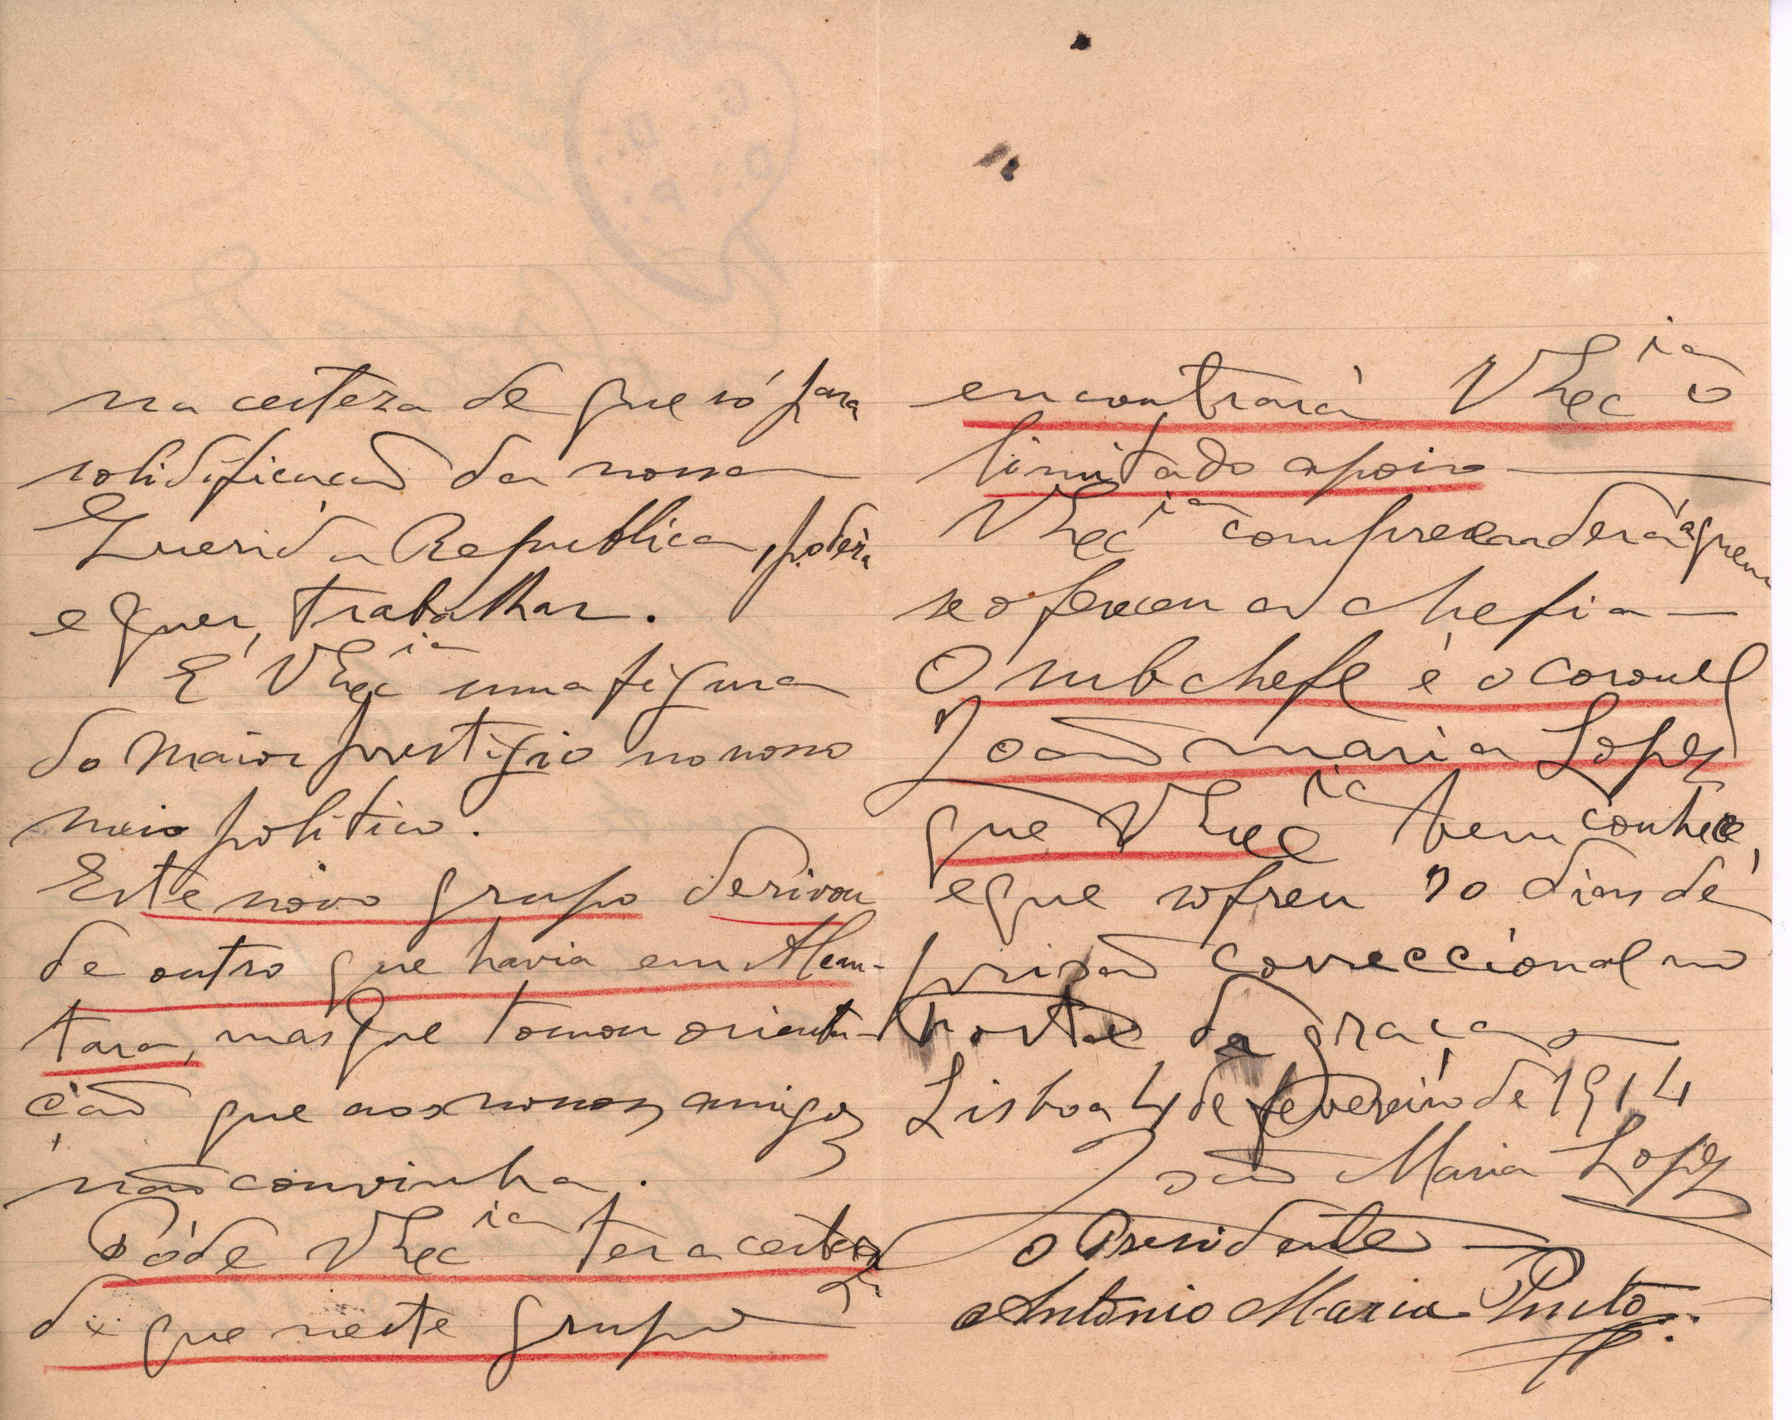 na certeza de que só para
solidificacão da nossa
Querida Republica, poderá
e quer, trabalhar.
É V Exc ia uma figura
do maior prestigio no nosso
meio politico.
Este novo grupo derivou
de outro que havia em Alcan-
tara, mas que tomou orienta-
ção que aos nossos amigos
não convinha.
Póde V Exc ia ter a certeza
de que neste grupo
encontrará V Exc ia o
limitado apoio
V Exc ia compreenderá a quem
se ofereceu a chefia
O sub chefe é o coronel
João Maria Lopes
que V Exc ia bem conhece,
e que sofreu 70 dias de
prisão correccional no
Forte da Graça
Lisboa 4 de fevereiro de 1914
João Maria Lopes
O Presidente
Antonio Maria Pinto
G.. D..
O.. P..